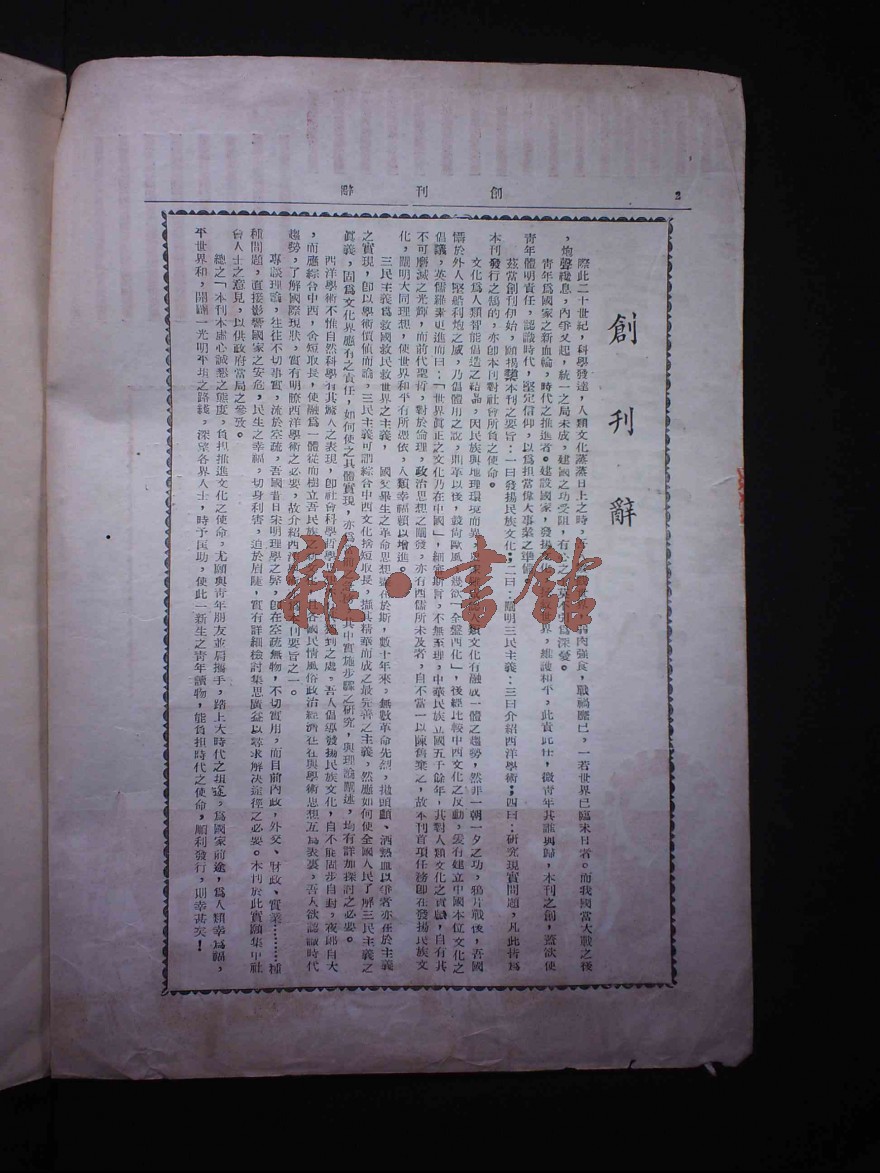 創刊辭
2
創刊辭
際此二十世紀，科學發達，人類文化蒸蒸日上之時，弱肉強食，戰禍靡已，一若世界已臨末日者。而我國當大戰之後
，炮聲幾息，內爭又起，統一之局未成，建國之功受阻，有心之莫不引爲深憂。
青年爲國家之新血輪，時代之推進者。建設國家，發揚文化，界，維護和平，此責此任，微青年其誰與歸，本刊之創，蓋欲使
青年體明責任，認識時代，堅定信仰，以爲担當偉大事業之準備。
茲當創刊伊始，願揭櫫本刊之要旨：一曰發揚民族文化；二曰：闡明三民主義：三曰介紹西洋學術；四曰：研究現實問題，凡此皆爲
本刊發行之鵠的，亦即本刊對社會所負之使命。
文化爲人類智能創造之結晶，因民族與地理環境而異，人類文化有融成一體之趨勢，然非一朝一夕之功，鴉片戰後，吾國
懾於外人堅船利炮之威，乃倡體用之說，則革以後，競尚歐風，幾欲「全盤西化」，後經比較中西文化之反動，爰有建立中國本位文化之
倡議，英儒羅素更進而曰：「世界眞正之文化乃在中國」，細審斯言，不無至理，中華民族立國五千餘年，其對人類文化之貢獻，自有其
不可磨滅之光輝，而前代聖哲，對於倫理，政治思想之闡發，亦有西儒所未及者，自不當一以陳舊棄之，故本刊首項任務即在發揚民族文
化，闡明大同理想，使世界和平有所憑依，人類幸福賴以增進。
三民主義爲救國救民救世界之主義，　國父畢生之革命思想在於斯，數十年來，無數革命先烈，拋頭顱、洒熱血以爭者亦在於主義
之實現，卽以學術價値而論，三民主義可謂綜合中西文化捨短取長，擷其精華而成之最完善之主義，然應如何使全國人民了解三民主義之
眞義，固爲文化界應有之責任，如何使之具體實現，亦爲其中實施步驟之研究，與理論闡述，均有詳加探討之必要。
西洋學術不惟自然科學有其驚人之表現，卽社會科學哲學思想到之處，吾人倡導發揚民族文化，自不能固步自封，夜郎自大
，而應綜合中西，舍短取長，使融爲一體從而樹立吾民族之且各國民情風俗政治經濟往往與學術思想互爲表裏，吾人欲認識時代
趨勢，了解國際現狀，實有明瞭西洋學術之必要，故介紹西洋本刊要旨之一。
專談理論，往往不切事實，流於空疏，吾國昔日宋明理學之弊，卽在空疏無物，不切實用，而目前內政，外交、財政、實業………種
種問題，直接影響國家之安危，民生之幸福，切身利害，迫於眉睫，實有詳細檢討集思廣益以尋求解決途徑之必要。本刊於此實願集中社
會人士之意見，以供政府當局之參攷。
總之「本刊本虛心誠懇之態度，負担推進文化之使命，尤願與青年朋友並肩攜手，踏上大時代之坦途，爲國家前途，爲人類幸爲福，
平世界和，開闢一光明平坦之路綫，深望各界人士，時予匡助，使此一新生之青年讀物，能負担時代之使命，順利發行，則幸甚矣！
雜·書館